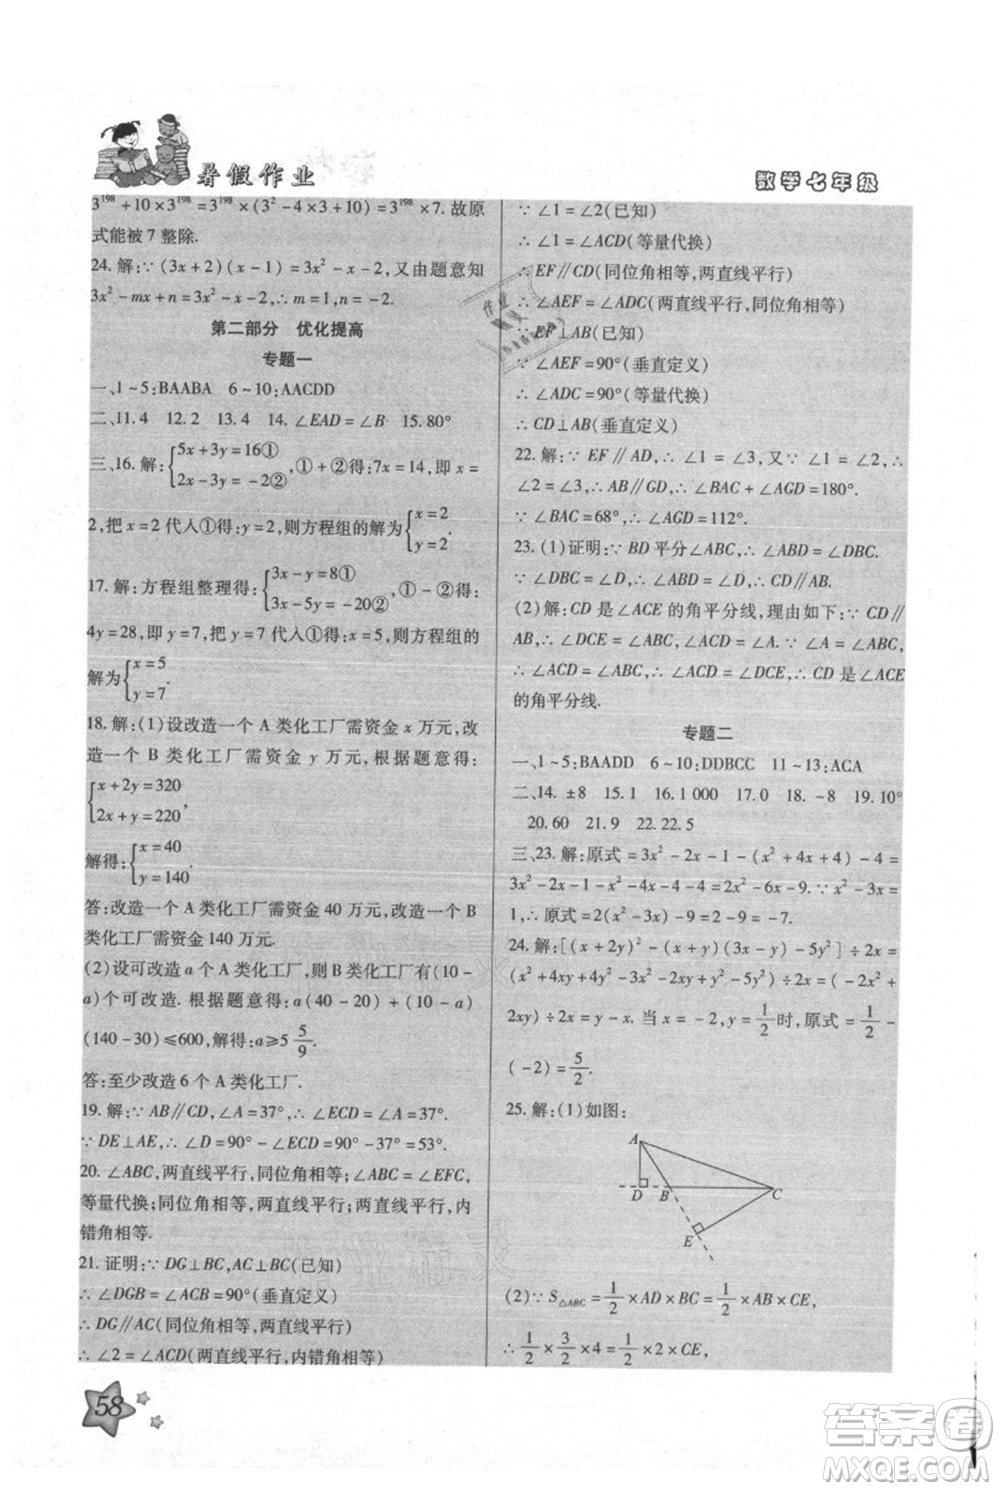 暑假作业
数学七年级
3^198+10×3^198=3^198×(3²-4×3+10)=3^198×7.故原
式能被7整除.
24.解:∵(3x+2)(x-1)=3x²-x-2,又由题意知
3x²-mx+n=3x²-x-2,∴m=1,n=-2.
第二部分 优化提高
专题一
一、1~5:BAABA 6~10:AACDD
二、11.4 12.2 13.4 14.∠EAD=∠B 15.80°
三、16.解:{5x+3y=16① 2x-3y=-2②,①+②得:7x=14,即x=
2,把x=2代入①得:y=2,则方程组的解为{x=2 y=2.
17.解:方程组整理得:{3x-y=8① 3x-5y=-20②,①-②得:
4y=28,即y=7,把y=7代入①得:x=5,则方程组的
解为{x=5 y=7.
18.解:(1)设改造一个A类化工厂需资金x万元,改
造一个B类化工厂需资金y万元,根据题意得:
{x+2y=320 2x+y=220,
解得:{x=40 y=140.
答:改造一个A类化工厂需资金40万元,改造一个B
类化工厂需资金140万元.
(2)设可改造a个A类化工厂,则B类化工厂有(10-
a)个可改造.根据题意得:a(40-20)+(10-a)
(140-30)≤600,解得:a≥5 5/9.
答:至少改造6个A类化工厂.
19.解:∵AB∥CD,∠A=37°,∴∠ECD=∠A=37°.
∵DE⊥AE,∴∠D=90°-∠ECD=90°-37°=53°.
20.∠ABC,两直线平行,同位角相等;∠ABC=∠EFC,
等量代换;同位角相等,两直线平行;两直线平行,内
错角相等.
21.证明:∵DG⊥BC,AC⊥BC(已知)
∴∠DGB=∠ACB=90°(垂直定义)
∴DG∥AC(同位角相等,两直线平行)
∴∠2=∠ACD(两直线平行,内错角相等)
∵∠1=∠2(已知)
∴∠1=∠ACD(等量代换)
∴EF∥CD(同位角相等,两直线平行)
∴∠AEF=∠ADC(两直线平行,同位角相等)
∵EF⊥AB(已知)
∴∠AEF=90°(垂直定义)
∴∠ADC=90°(等量代换)
∴CD⊥AB(垂直定义)
22.解:∵EF∥AD,∴∠2=∠3,又∵∠1=∠2,∴
∠1=∠3,∴AB∥GD,∴∠BAC+∠AGD=180°.
∵∠BAC=68°,∴∠AGD=112°.
23.(1)证明:∵BD平分∠ABC,∴∠ABD=∠DBC.
∵∠DBC=∠D,∴∠ABD=∠D,∴CD∥AB.
(2)解:CD是∠ACE的角平分线,理由如下:∵CD∥
AB,∴∠DCE=∠ABC,∠ACD=∠A.又∵∠A=
∠ABC,∴∠ACD=∠ABC=∠DCE,∴CD是∠ACE
的角平分线.
专题二
一、1~5:BAADD 6~10:DDBCC 11~13:ACA
二、14.±8 15.1 16.1 000 17.0 18.-8 19.10°
20.60 21.9 22.22.5
三、23.解:原式=3x²-2x-1-(x²+4x+4)-4=
3x²-2x-1-x²-4x-4-4=2x²-6x-9.∵x²-3x=
1,∴原式=2(x²-3x)-9=2-9=-7.
24.解:[(x+2y)²-(x+y)(3x-y)-5y²]÷2x=
(x²+4xy+4y²-3x²-2xy+y²-5y²)÷2x=(-2x²+
2xy)÷2x=y-x.当x=-2,y=1/2时,原式=1/2-
(-2)=5/2.
25.解:(1)如图:
A
D
B
C
E
(2)∵S△ABC=1/2×AD×BC=1/2×AB×CE,
∴1/2×3/2×4=1/2×2×CE,
58
答案卷
MXQE.COM